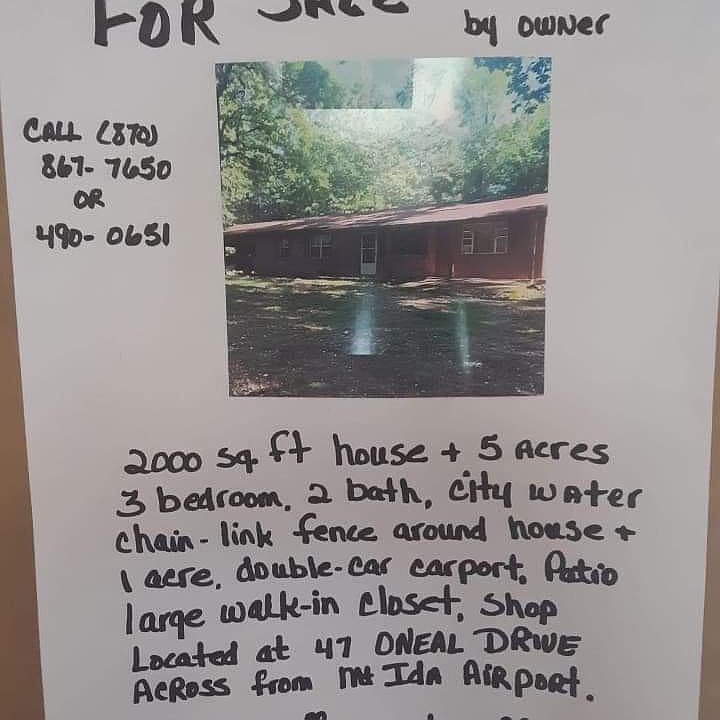 FOR SALE
by OWNER
CALL (870)
867-7650
OR
490-0651
2000 sq ft house + 5 Acres
3 bedroom, 2 bath, city water
chain-link fence around house +
1 acre, double-car carport, Patio
large walk-in closet, Shop
Located at 47 ONEAL DRIVE
Across from Mt Ida Airport.